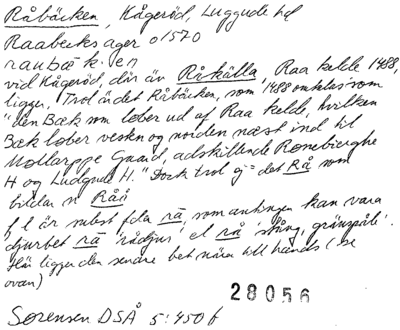 Råbäcken, Kågeröd, Luggude hd
Raabecks ager o 1570
raubæk:en
vid Kågeröd, där äv Råkälla, Raa kelde 1488,
ligger. Trol är det Råbäcken, som 1488 omtalas som
"den Bæk som løber ud af Raa kelde, hvilken
Bæk løber vesten og norden næst ind til
Mollarppe Gaard, adskillende Rønebierghe
H og Ludgude H." Dock trol ej det Rå som
bildar n Råå
f l är subst fda rå, som antingen kan vara
djurbet rå 'rådjur', el rå 'stång, gränspåle'.
Här ligger den senare bet nära till hands (se
ovan)
28056
Sørensen DSÅ 5:450 f